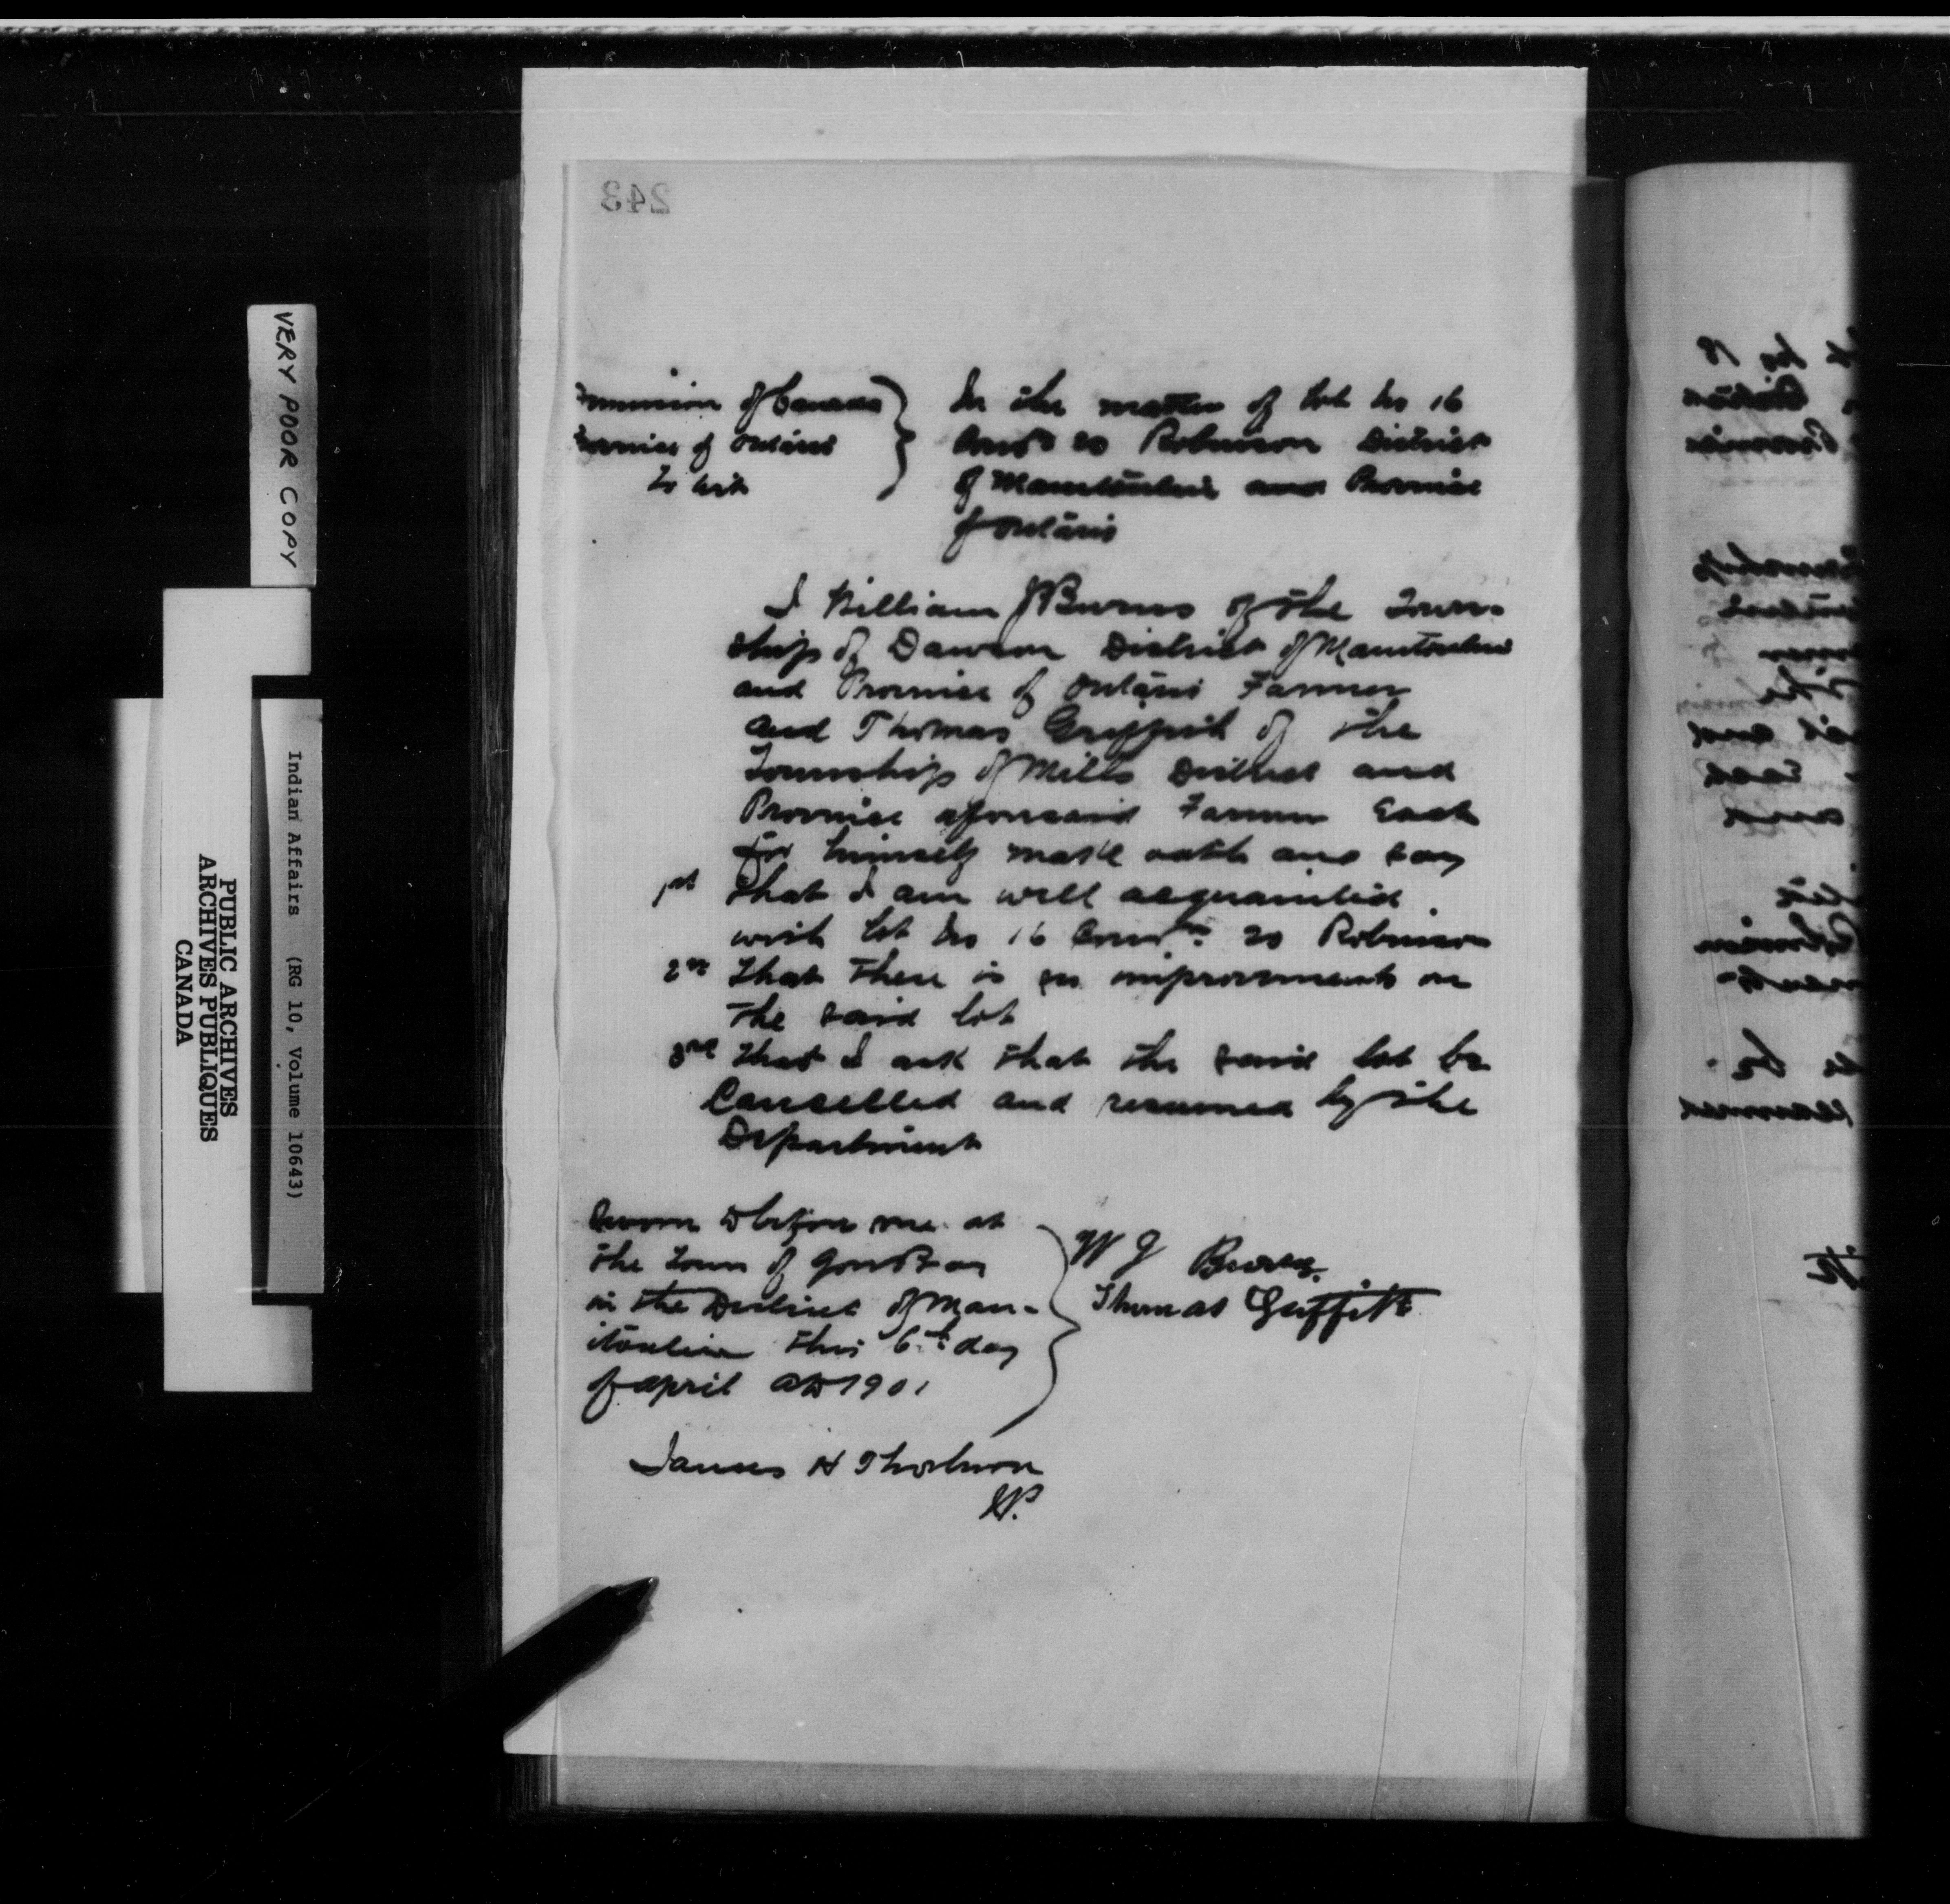 243
Dominion of Canada
Province of Ontario
To Wit
In the matter of Lot No 16
Conc 20 Robinson District
of Manitoulin and Province
of Ontario
I William J Burns of the Town-
ship of Dawson District of Manitoulin
and Province of Ontario Farmer
and Thomas Griffith of the
Township of Mills District and
Province aforesaid Farmer Each
for himself make oath and say
1st That I am well acquainted
with Lot No 16 Con 20 Robinson
2nd That there is no improvements on
the said Lot
3rd That I ask that the said Lot be
Cancelled and resumed by the
Department
Sworn before me at
the Town of Gore Bay
in the District of Man-
itoulin this 6th day
of April AD 1901
W J Burns
Thomas Griffith
James H Thorburn
JP.
VERY POOR COPY
Indian Affairs (RG 10, Volume 10643)
PUBLIC ARCHIVES
ARCHIVES PUBLIQUES
CANADA